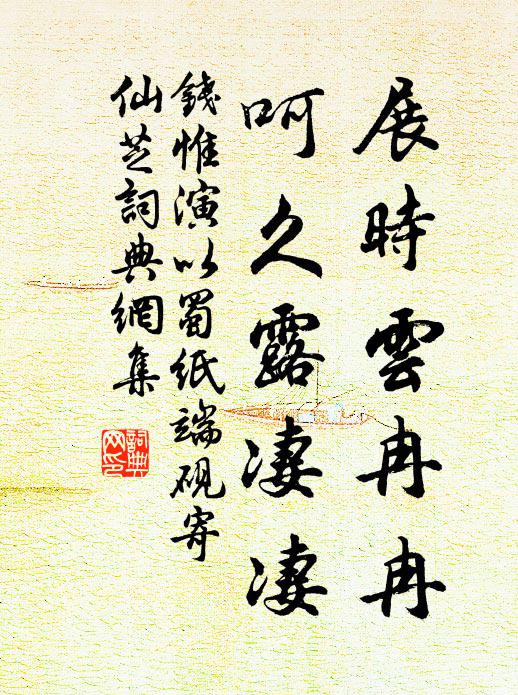 展時雲冉冉
呵久露淒淒
錢惟演以蜀紙端硯寄
仙芝詞典網集
詞典
网印